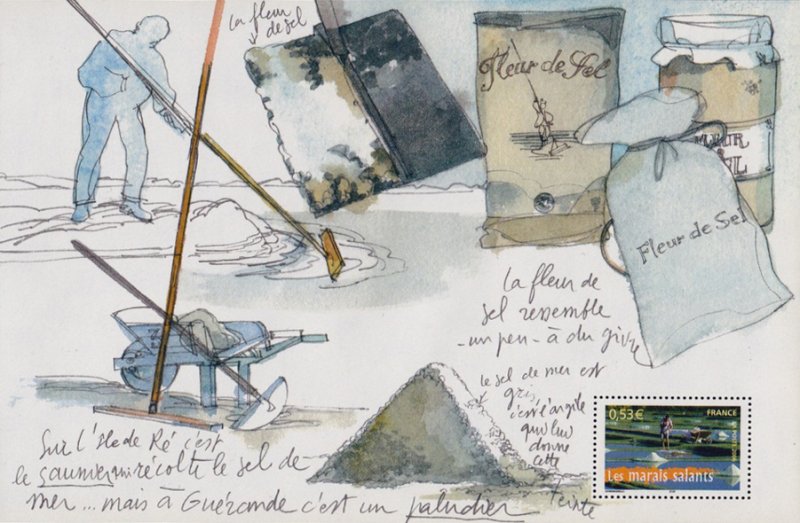 La fleur
de sel
Fleur de Sel
FLEUR
SEL
Fleur de Sel
La fleur de
sel ressemble
-un peu- à du givre
le sel de mer est
gris,
c'est l'argile
qui lui
donne
cette
teinte
0,53€ FRANCE
Les marais salants
Sur l'Ile de Ré c'est
le saunier qui récolte le sel de
mer... mais à Guérande c'est un paludier